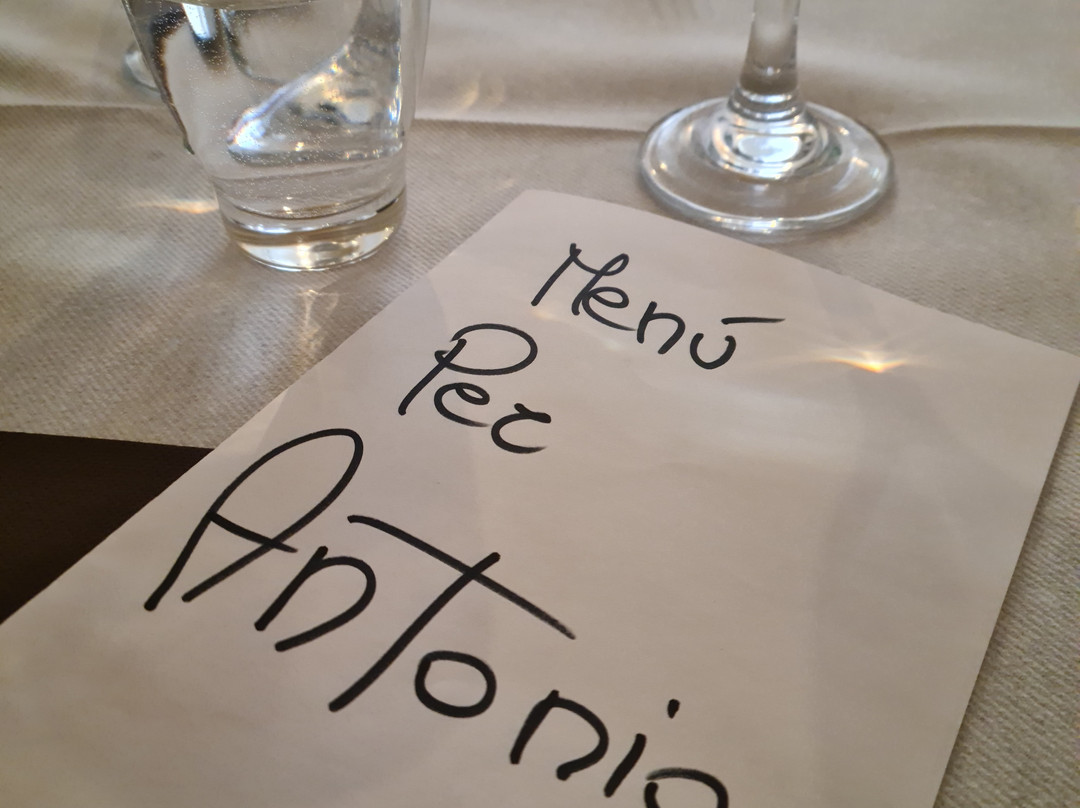 Menú
Per
Antonio